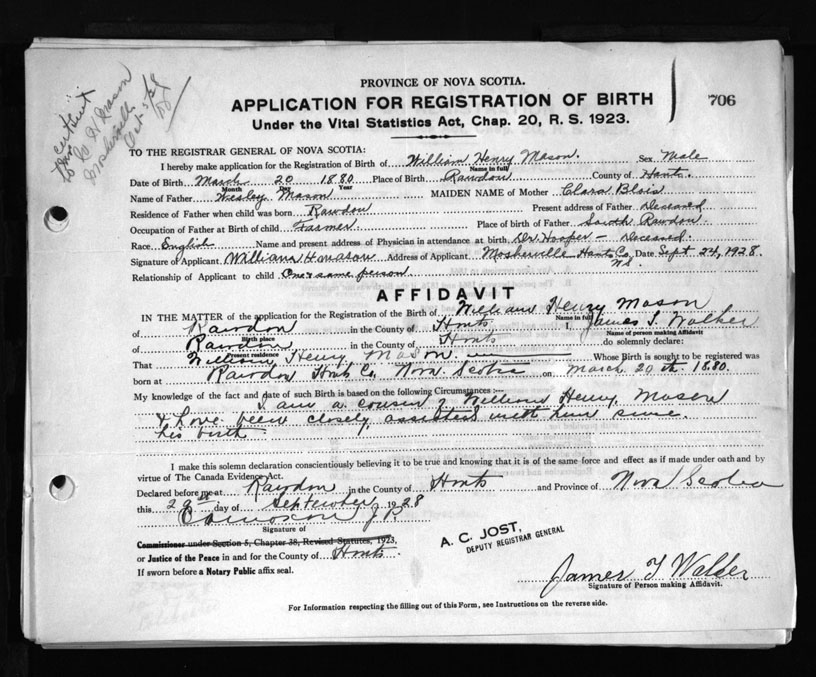 PROVINCE OF NOVA SCOTIA.
APPLICATION FOR REGISTRATION OF BIRTH
706
Under the Vital Statistics Act, Chap. 20, R. S. 1923.
TO THE REGISTRAR GENERAL OF NOVA SCOTIA:
I hereby make application for the Registration of Birth of William Henry Mason. Sex Male
Name in full
Date of Birth March 20 1880 Place of Birth Rawdon County of Hants.
Month Day Year
Name of Father Wesley Mason MAIDEN NAME of Mother Clara Blois
Residence of Father when child was born Rawdon Present address of Father Deceased
Occupation of Father at Birth of child Farmer Place of birth of Father South Rawdon.
Race English Name and present address of Physician in attendance at birth Dr Hooper - Deceased.
Signature of Applicant William H mason Address of Applicant Mosherville Hants Co. N.S. Date Sept 24, 1928.
Relationship of Applicant to child One & same person
AFFIDAVIT
IN THE MATTER of the application for the Registration of the Birth of William Henry Mason
Name in full
of Rawdon in the County of Hants I, James T. Walker
Birth place Name of person making Affidavit
of Rawdon in the County of Hants do solemnly declare:
Present residence
That William Henry Mason. Whose Birth is sought to be registered was
born at Rawdon Hants Co, Nova Scotia on March 20th 1880.
My knowledge of the fact and date of such Birth is based on the following Circumstances:—
I am a cousin of William Henry Mason
& have been closely with him since
his birth
I make this solemn declaration conscientiously believing it to be true and knowing that it is of the same force and effect as if made under oath and by
virtue of The Canada Evidence Act.
Declared before me at Rawdon in the County of Hants and Province of Nova Scotia
this 29 day of September 1928
J P
Signature of
Commissioner under Section 5, Chapter 38, Revised Statutes, 1923,
or Justice of the Peace in and for the County of Hants
If sworn before a Notary Public affix seal.
A. C. JOST,
DEPUTY REGISTRAR GENERAL
James T Walker
Signature of Person making Affidavit.
For Information respecting the filling out of this Form, see Instructions on the reverse side.